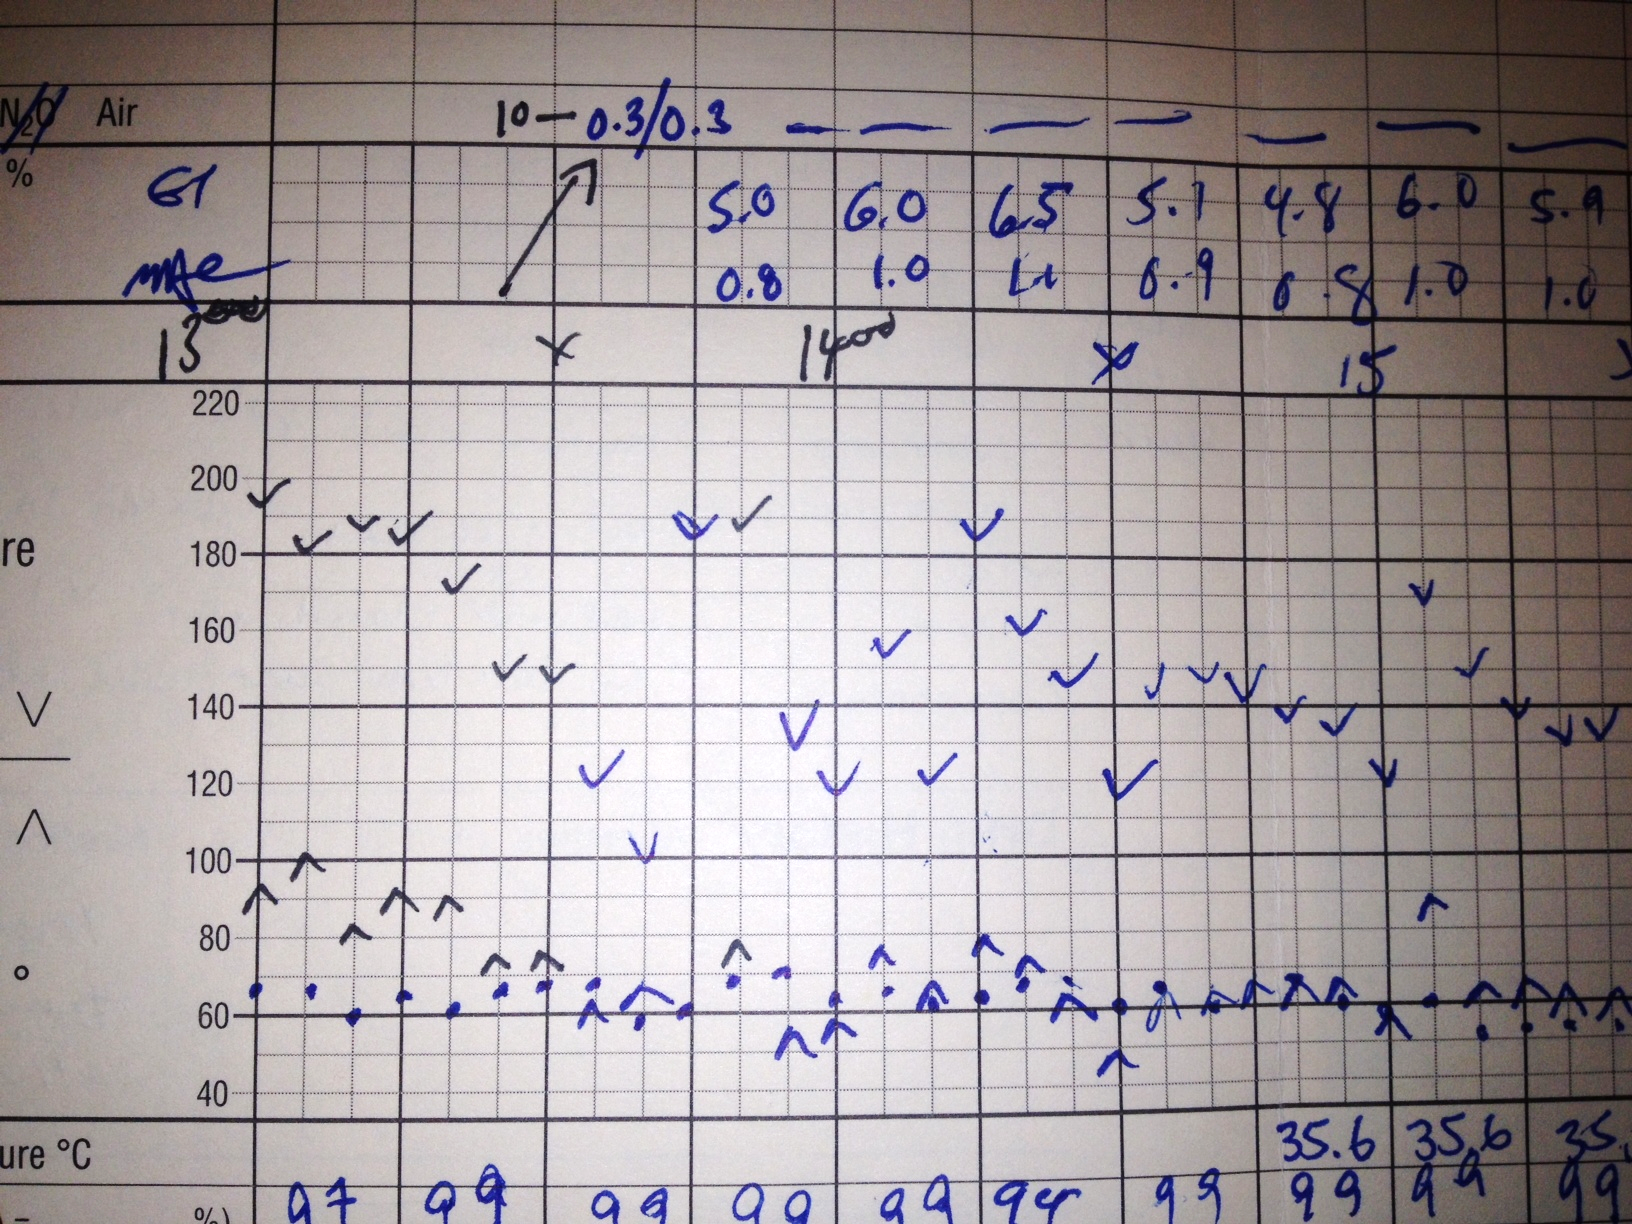 N₂O Air 10 — 0.3/0.3
% ET 5.0 6.0 6.5 5.7 4.8 6.0 5.9
mAc 0.8 1.0 1.1 0.9 0.8 1.0 1.0
13 x 14 x 15
220
200
re
180
160
140
120
100
80
60
40
ure °C 35.6 35.6 35.
%) 97 99 99 99 99 94 99 99 99 99